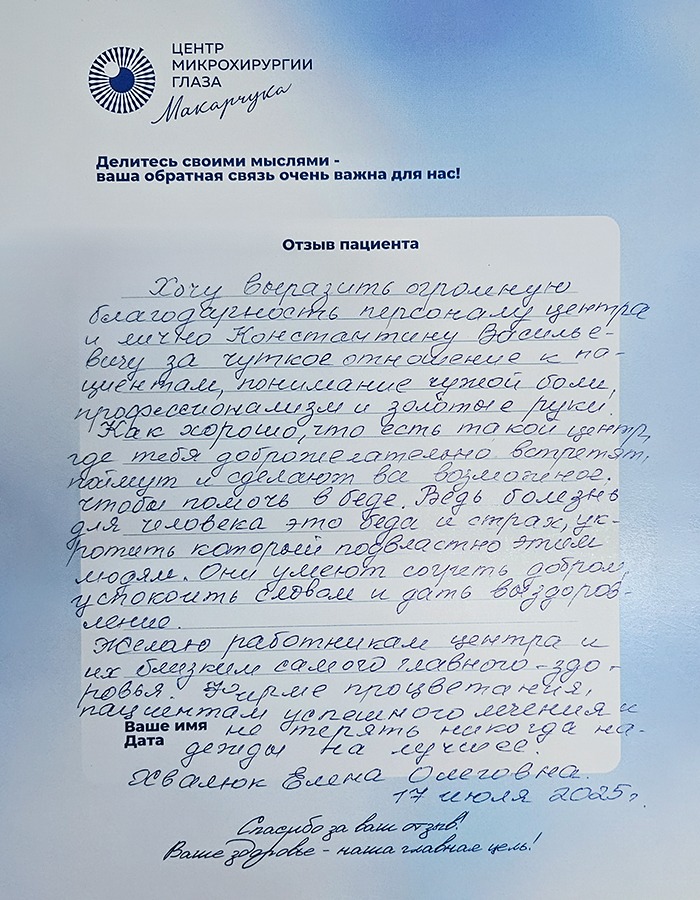 ЦЕНТР
МИКРОХИРУРГИИ
ГЛАЗА
Макарчука
Делитесь своими мыслями -
ваша обратная связь очень важна для нас!
Отзыв пациента
Хочу выразить огромную
благодарность персоналу центра
и лично Константину Василье-
вичу за чуткое отношение к па-
циентам, понимание чужой боли,
профессионализм и золотые руки.
Как хорошо, что есть такой центр,
где тебя доброжелательно встретят,
поймут и сделают все возможное,
чтобы помочь в беде. Ведь болезнь
для человека это беда и страх, ук-
ротить который подвластно этим
людям. Они умеют лечить добром,
успокоить словом и дать выздоров-
ление.
Желаю работникам центра и
их близким самого главного - здо-
ровья. Фирме процветания,
пациентам успешного лечения и
Ваше имя не терять никогда на-
Дата дежды на лучшее!
Хвалюк Елена Олеговна.
17 июля 2025г.
Спасибо за ваш отзыв!
Ваше здоровье - наша главная цель!